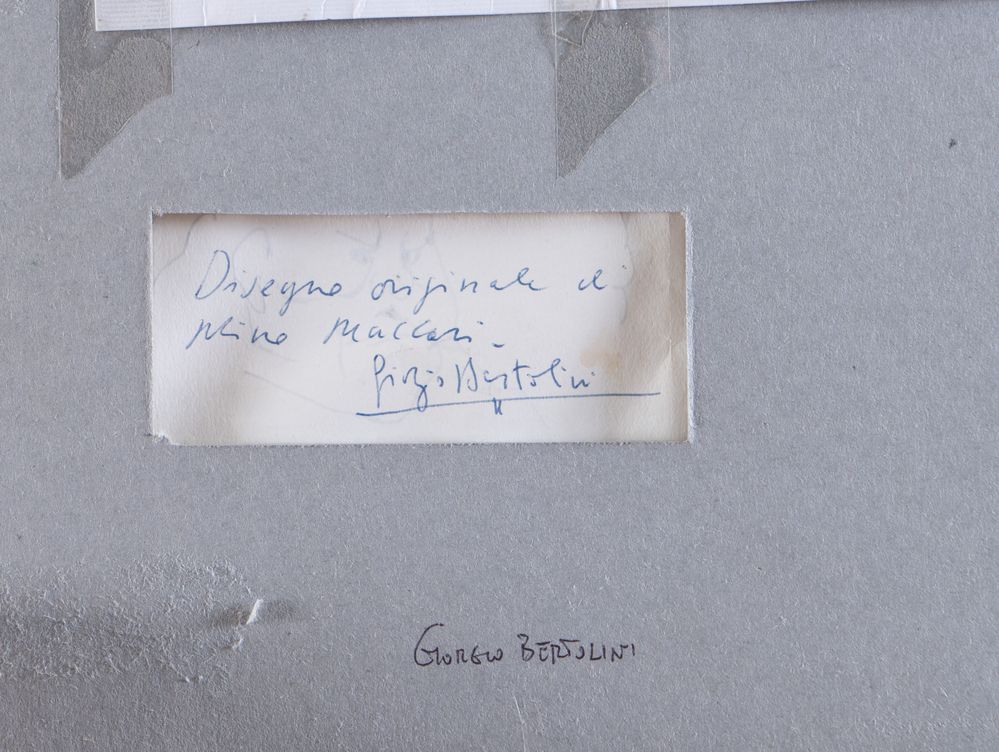 Disegno originale di
Mino Maccari.
Giorgio Bertolini
GIORGIO BERTOLINI